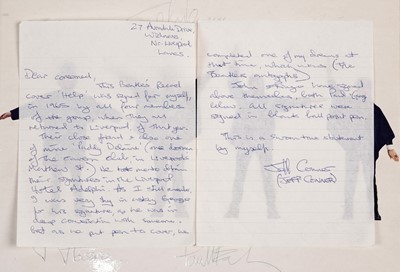 27 Avondale Drive
Widnes
Nr. Liverpool
Lancs.
Dear concerned,
This Beatles Record
cover 'Help' was signed for myself,
in 1965 by all four members
of the group, when they had
returned to Liverpool of that year.
Their close friend & also one
of mine 'Paddy Delaney' (one
of the Cavern club in Liverpools
Matthew St.) let me to obtain
their signatures in the Liverpool
Hotel Adelphi. As I still
I was very shy in asking
for his signature, as he was in
deep conversation with someone
but as he put pen to cover, he
completed one of my dreams at
that time, which was (The
Beatles autographs)
John
above themselves both Paul
below. All signatures were
signed in black ball point pen.
This is a sworn true statement
by myself
Jeff Conner
(JEFF CONNER)